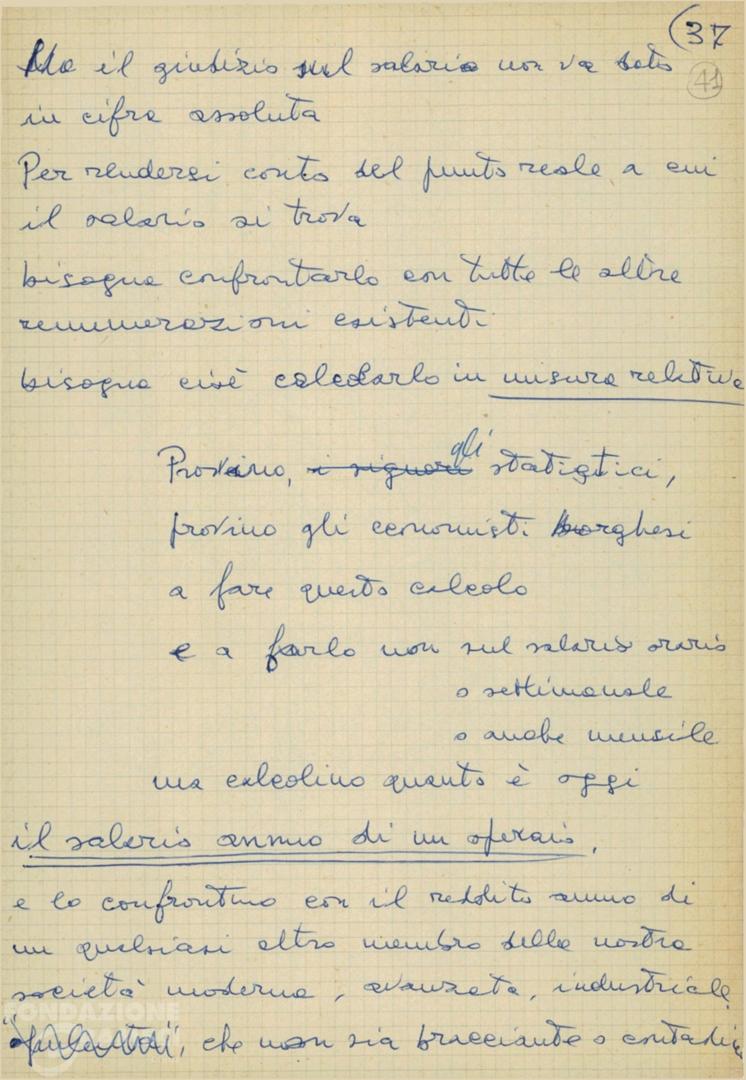 (37
41
Ma il giudizio sul salario non va dato
in cifra assoluta
Per rendersi conto del punto reale a cui
il salario si trova
bisogna confrontarlo con tutte le altre
remunerazioni esistenti
bisogna cioè calcolarlo in misura relativa
Provino, i signori gli statistici,
provino gli economisti borghesi
a fare questo calcolo
e a farlo non sul salario orario
o settimanale
o anche mensile
ma calcolino quanto è oggi
il salario annuo di un operaio,
e lo confrontino con il reddito annuo di
un qualsiasi altro membro della nostra
società moderna, avanzata, industriale
che non sia bracciante o contadino
FONDAZIONE